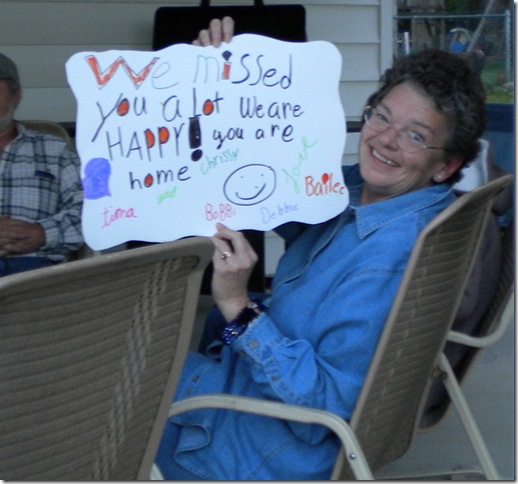 We missed
You a lot We are
HAPPY! you are
home Chrissy
Bailee
tiana BoBBi Debbie